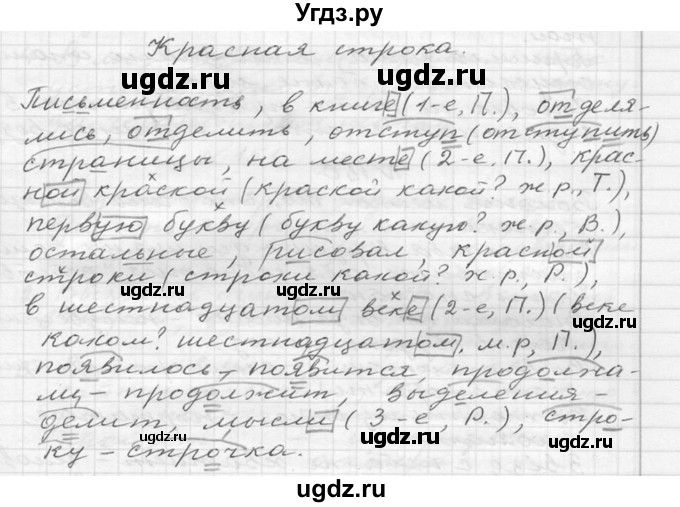 Угдз.ру
Красная строка.
Письменность, в книге (1-е, П.), отделя-
лись, отделить, отступ (отступить)
страницы, на месте (2-е, П.), крас-
ной краской (краской какой? ж.р., Т.),
первую букву (букву какую? ж.р., В.),
остальные, рисовал, красной
строки (строки какой? ж.р., Р.),
в шестнадцатом веке (2-е, П.) (веке
каком? шестнадцатом, м.р., П.),
появилось – появится, продолжа-
ли – продолжит, выделения -
делит, мысли (3-е, Р.), стро-
ку – строчка.
ugdz.ru
ugdz.ru
ugdz.ru
ugdz.ru
ugdz.ru
ugdz.ru
ugdz.ru
ugdz.ru
ugdz.ru
ugdz.ru
ugdz.ru
ugdz.ru
ugdz.ru